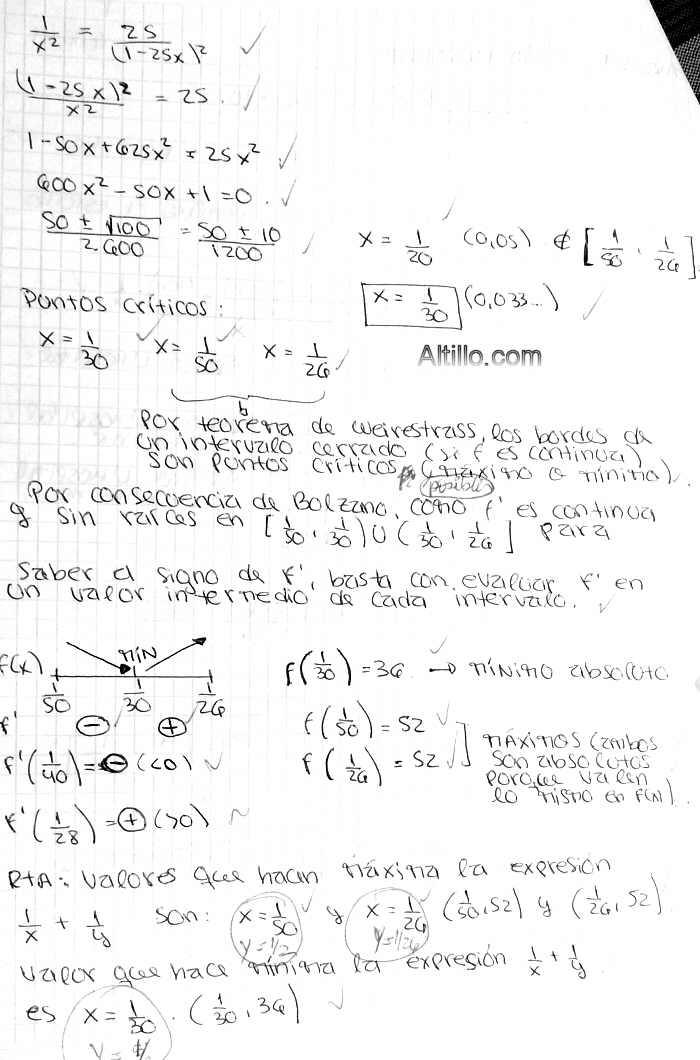 1/x² = 25/(1-25x)² ✓
(1-25x)²/x² = 25. ✓
1-50x+625x² = 25x² ✓
600x² - 50x + 1 = 0. ✓
(50 ± √100)/(2.600) = (50 ± 10)/1200 ✓
x = 1/20 (0,05) ∉ [1/50, 1/26]
x = 1/30 (0,033...) ✓
Puntos críticos:
x = 1/30 ✓ x = 1/50 ✓ x = 1/26 ✓
Altillo.com
Por teorema de Weirestrass, los bordes de
un intervalo cerrado (si f es continua)
son puntos críticos (máximo o mínimo).
posibles
Por consecuencia de Bolzano, como f' es continua
y sin raíces en [1/50, 1/30) ∪ (1/30, 1/26] para
saber el signo de f', basta con evaluar f' en
un valor intermedio de cada intervalo. ✓
MÍN
f(x)
1/50 1/30 1/26
f' ⊖ ⊕
f'(1/40) = ⊖ (<0) ✓
f'(1/28) = ⊕ (>0)
f(1/30) = 36 → mínimo absoluto
f(1/50) = 52 ✓
f(1/26) = 52 ✓
MÁXIMOS (ambos
son absolutos
porque valen
lo mismo en f(x)).
RTA: Valores que hacen máxima la expresión
1/x + 1/y son: x = 1/50 y x = 1/26 (1/50, 52) y (1/26, 52)
y = 1/2 y = 1/26
valor que hace mínima la expresión 1/x + 1/y
es x = 1/30. (1/30, 36) ✓